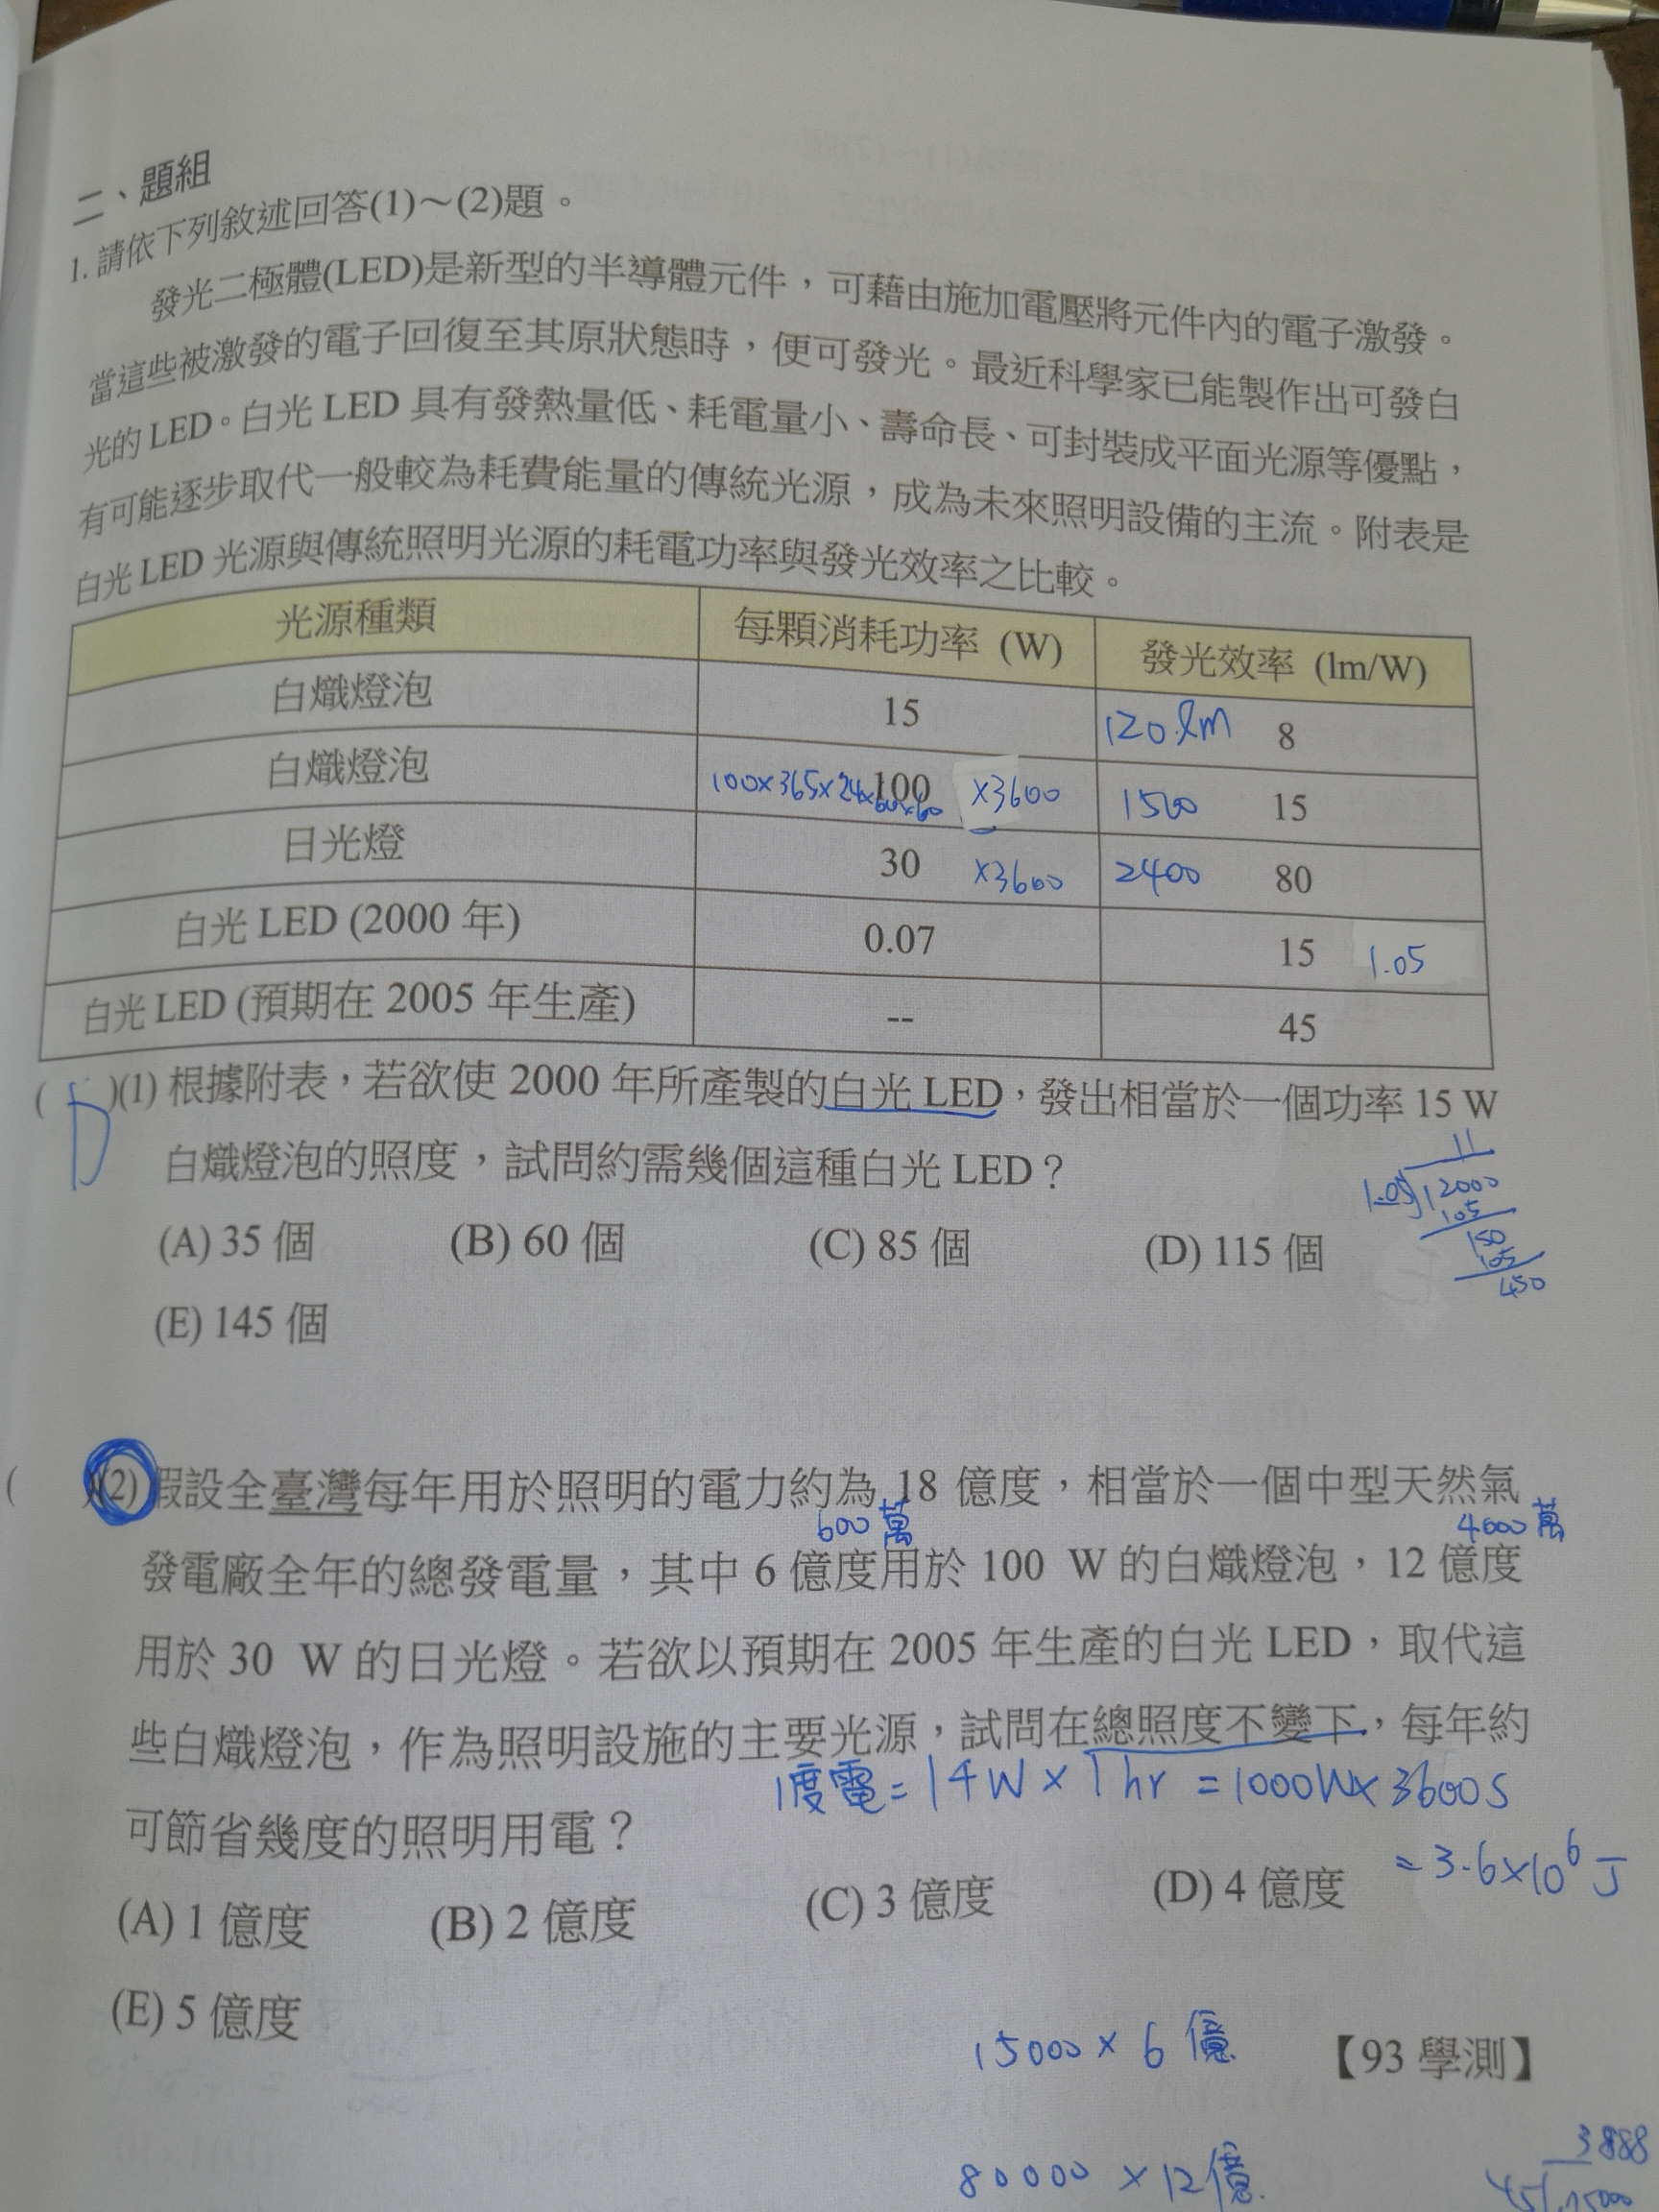 二、題組
1. 請依下列敘述回答(1)～(2)題。
發光二極體(LED)是新型的半導體元件，可藉由施加電壓將元件內的電子激發。
當這些被激發的電子回復至其原狀態時，便可發光。最近科學家已能製作出可發白
光的 LED。白光 LED 具有發熱量低、耗電量小、壽命長、可封裝成平面光源等優點，
有可能逐步取代一般較為耗費能量的傳統光源，成為未來照明設備的主流。附表是
白光 LED 光源與傳統照明光源的耗電功率與發光效率之比較。
光源種類 每顆消耗功率 (W) 發光效率 (lm/W)
白熾燈泡 15 120 lm 8
白熾燈泡 100×365×24×60×60 100 ×3600 1500 15
日光燈 30 ×3600 2400 80
白光 LED (2000 年) 0.07 15 1.05
白光 LED (預期在 2005 年生產) -- 45
( D )(1) 根據附表，若欲使 2000 年所產製的白光 LED，發出相當於一個功率 15 W
白熾燈泡的照度，試問約需幾個這種白光 LED？
11
1.05 12000
105
150
105
450
(A) 35 個 (B) 60 個 (C) 85 個 (D) 115 個
(E) 145 個
( )(2) 假設全臺灣每年用於照明的電力約為 18 億度，相當於一個中型天然氣
600萬 4000萬
發電廠全年的總發電量，其中 6 億度用於 100 W 的白熾燈泡，12 億度
用於 30 W 的日光燈。若欲以預期在 2005 年生產的白光 LED，取代這
些白熾燈泡，作為照明設施的主要光源，試問在總照度不變下，每年約
1度電= 1仟W × 1 hr = 1000W× 3600s
可節省幾度的照明用電？
= 3.6×10⁶ J
(A) 1 億度 (B) 2 億度 (C) 3 億度 (D) 4 億度
(E) 5 億度
15000 × 6 億
【93 學測】
80000 × 12億
3888